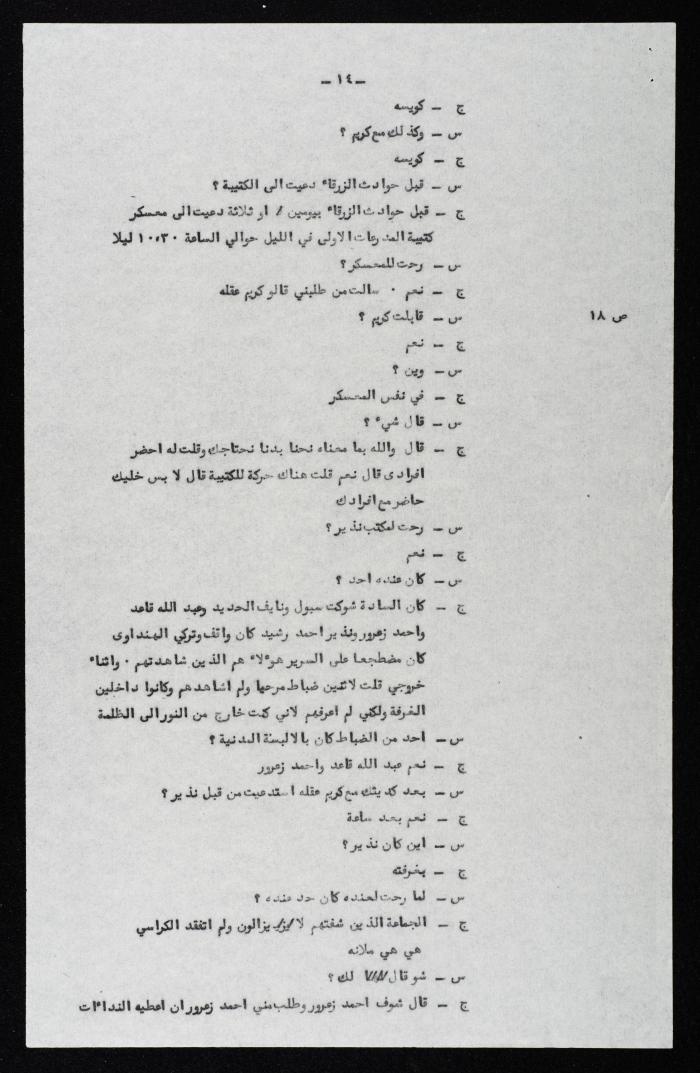 ــ ١٤ ــ
ج ــ كويسه
س ــ وكذلك مع كريم ؟
ج ــ كويسه
س ــ قبل حوادث الزرقاء دعيت الى الكتيبة ؟
ج ــ قبل حوادث الزرقاء بيومين / او ثلاثة دعيت الى معسكر
كتيبة المدرعات الاولى في الليل حوالي الساعة ١٠،٣٠ ليلا
س ــ رحت للمعسكر ؟
ج ــ نعم ٠ سالت من طلبني قالو كريم عقله
س ــ قابلت كريم ؟
ص ١٨
ج ــ نعم
س ــ وين ؟
ج ــ في نفس المعسكر
س ــ قال شيء ؟
ج ــ قال والله بما معناه نحنا بدنا نحتاجك وقلت له احضر
افرادى قال نعم قلت هناك حركة للكتيبة قال لا بس خليك
حاضر مع افرادك
س ــ رحت لمكتب نذير ؟
ج ــ نعم
س ــ كان عنده احد ؟
ج ــ كان السادة شوكت سبول ونايف الحديد وعبد الله قاعد
واحمد زعرور ونذير احمد رشيد كان واقف وتركي الهنداوى
كان مضطجعا على السرير هوءلاء هم الذين شاهدتهم ٠ واثناء
خروجي قلت لاثنين ضباط مرحبا ولم اشاهدهم وكانوا داخلين
الغرفة ولكني لم اعرفهم لاني كنت خارج من النور الى الظلمة
س ــ احد من الضباط كان بالالبسة المدنية ؟
ج ــ نعم عبد الله قاعد واحمد زعرور
س ــ بعد كديثك مع كريم عقله استدعيت من قبل نذير ؟
ج ــ نعم بعد ساعة
س ــ اين كان نذير ؟
ج ــ بغرفته
س ــ لما رحت لعنده كان حد عنده ؟
ج ــ الجماعة الذين شفتهم لا يزالون ولم اتفقد الكراسي
هي هي ملانه
س ــ شو قال لك ؟
ج ــ قال شوف احمد زعرور وطلب مني احمد زعرور ان اعطيه النداءات